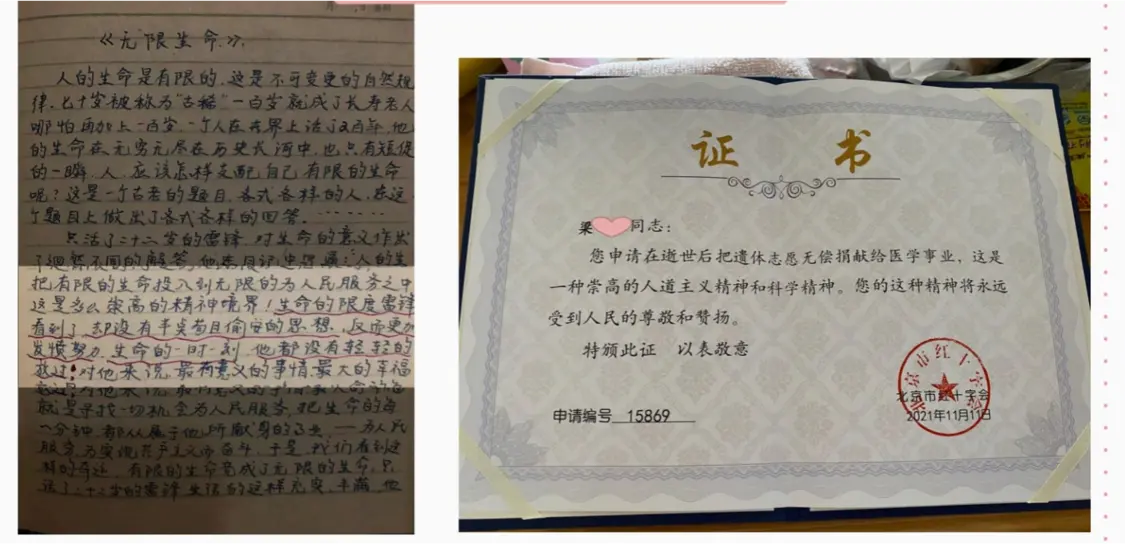 《无限生命》.
人的生命是有限的,这是不可变更的自然规
律.七十岁被称为“古稀”一百岁就成了长寿老人
哪怕再加上一百岁.一个人在世界上活了二百年,他
的生命在无穷无尽在历史长河中,也只有短促
的一瞬,人应该怎样支配自己有限的生命
呢?这是一个古老的题目,各式各样的人,在这
个题目上做出了各式各样的回答.
只活了二十二岁的雷锋,对生命的意义作出
了迥然不同的解答,他在日记中写
把有限的生命投入到无限的为人民服务之中
这是多么崇高的精神境界!生命的限度雷锋
看到了,却没有半点苟且偷安的思想,反而更加
发愤努力,生命的一时一刻,他都没有轻轻的
放过!对他来说,最有意义的事情,最大的幸福
就是寻找一切机会为人民服务,把生命的每
一分钟,都从属于他所献身的事业,——为人民
服务,为实现共产主义而奋斗,于是,我们看到这
样的奇迹,有限的生命变成了无限的生命,只
活了二十二岁的雷锋生活的这样充实,丰满,他
证 书
梁 同志:
您申请在逝世后把遗体志愿无偿捐献给医学事业,这是
一种崇高的人道主义精神和科学精神。您的这种精神将永远
受到人民的尊敬和赞扬。
特颁此证 以表敬意
北京市红十字会
北京市红十字会
申请编号 15869
2021年11月11日